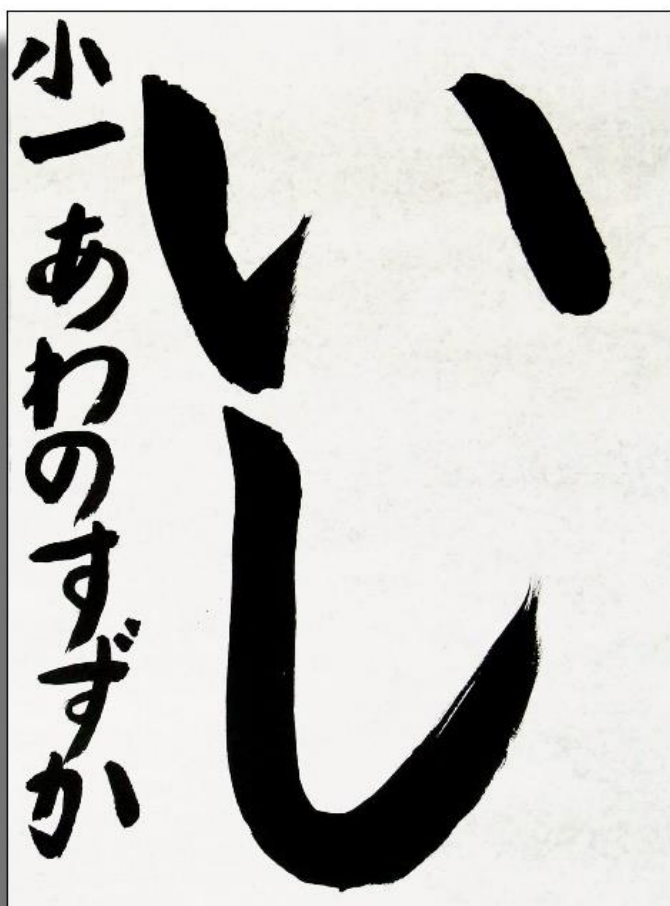 いし
小一 あわのすずか